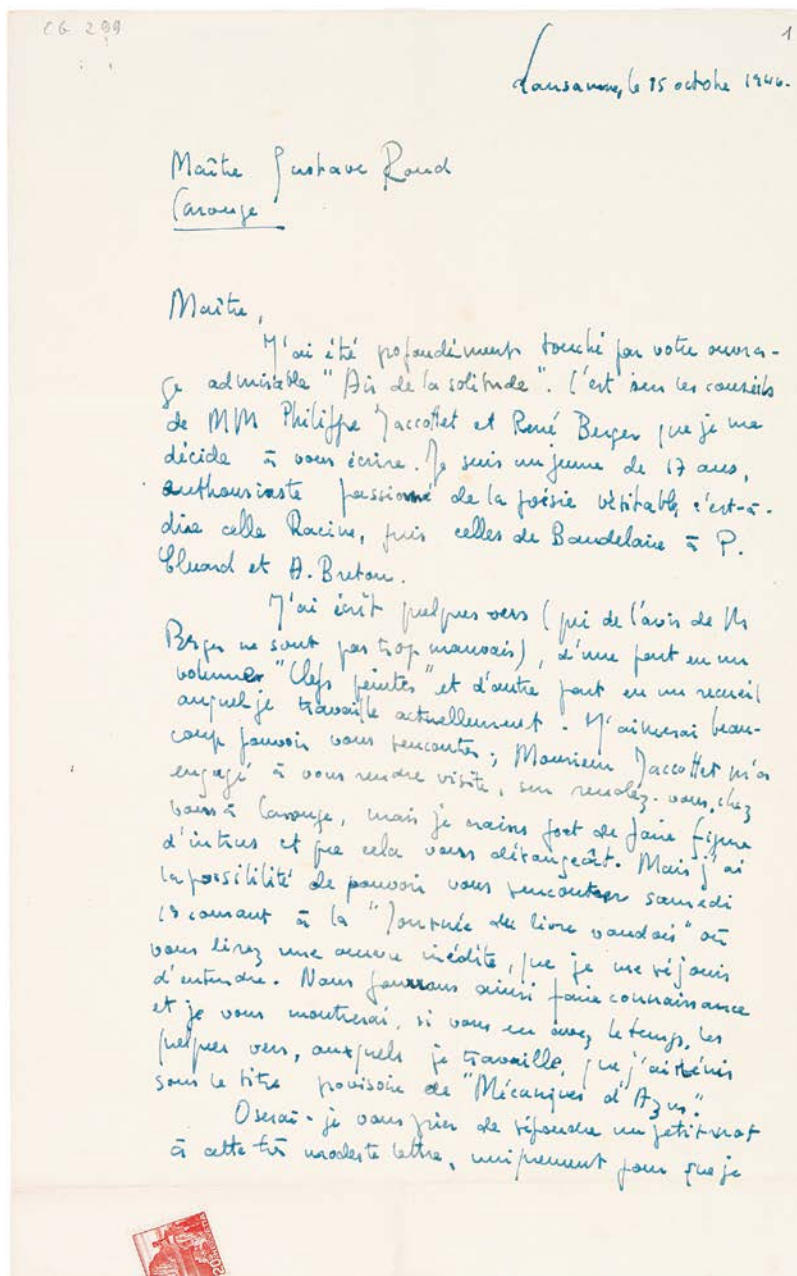 CG 299
1
Lausanne, le 15 octobre 1946.
Maître Gustave Roud
Carouge
Maître,
J'ai été pofondément touché par votre ouvra-
ge admirable "Air de la solitude". C'est sur les conseils
de MM Philippe Jaccottet et René Berger que je me
décide à vous écrire. Je suis un jeune de 17 ans,
enthousiaste passionné de la poésie véritable, c'est-à-
dire celle Racine, puis celles de Baudelaire à P.
Eluard et A. Breton.
J'ai écrit quelques vers (qui de l'avis de Mr
Berger ne sont pas trop mauvais), d'une part en un
volume "Clefs peintes" et d'autre part en un recueil
auquel je travaille actuellement. J'aimerai beau-
coup pouvoir vous rencontrer; Monsieur Jaccottet m'a
engagé à vous rendre visite, sur rendez-vous, chez
vous à Carouge, mais je crains fort de faire figure
d'intrus et que cela vous dérangeât. Mais j'ai
la possibilité de pouvoir vous rencontrer samedi
courant à la "Journée du livre vaudois" où
vous lirez une œuvre inédite, que je me réjouis
d'entendre. Nous pourrons ainsi faire connaissance
et je vous montrerai, si vous en avez le temps, les
quelques vers, auxquels je travaille, que j'ai réunis
sous le titre provisoire de "Mécaniques d'Azur".
Oserai-je vous prier de répondre un petit mot
à cette très modeste lettre, uniquement pour que je
20
HELVETIA